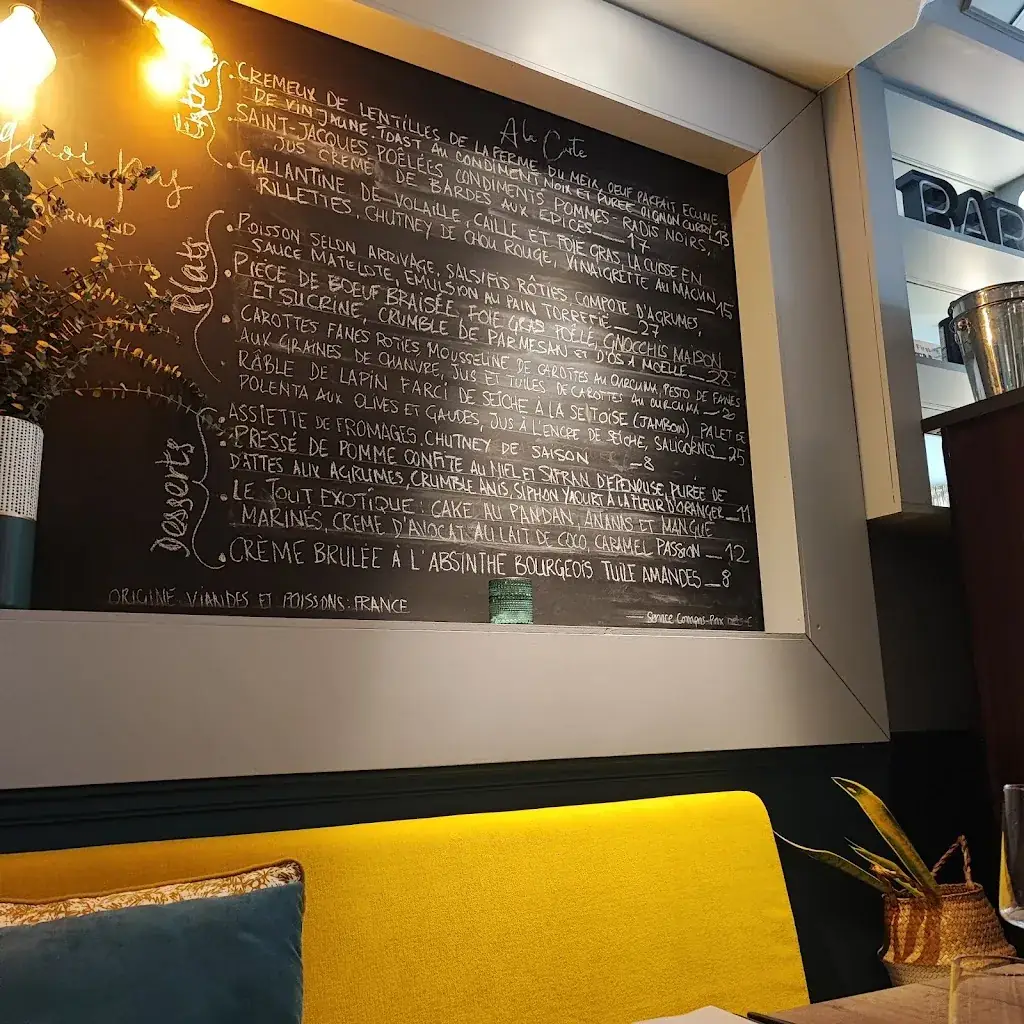 A la Carte
Entrées
CREMEUX DE LENTILLES DE LA FERME DU MEIX, OEUF PARFAIT, ECUME
DE VIN JAUNE, TOAST AU CONDIMENT NOIR ET PURÉE OIGNON CURRY
SAINT-JACQUES POÊLÉES, CONDIMENTS POMMES - RADIS NOIRS,
JUS CREMÉ DE BARDES AUX EPICES — 17
GALLANTINE DE VOLAILLE, CAILLE ET FOIE GRAS, LA CUISSE EN
RILLETTES, CHUTNEY DE CHOU ROUGE, VINAIGRETTE AU MACVIN — 15
Plats
POISSON SELON ARRIVAGE, SALSIFIS RÔTIES, COMPOTE D'AGRUMES,
SAUCE MATELOTE, EMULSION AU PAIN TORREFIÉ — 27
PIÈCE DE BOEUF BRAISÉE, FOIE GRAS POÊLÉ, GNOCCHIS MAISON
ET SUCRINE, CRUMBLE DE PARMESAN ET D'OS À MOELLE — 28
CAROTTES FANES ROTIES MOUSSELINE DE CAROTTES AU CURCUMA, PESTO DE FANES
AUX GRAINES DE CHANVRE, JUS ET TUILES DE CAROTTES AU CURCUMA — 20
RÂBLE DE LAPIN FARCI DE SEICHE A LA SETOISE (JAMBON), PALET DE
POLENTA AUX OLIVES ET GAUDES, JUS À L'ENCRE DE SEICHE, SALICORNES — 25
Desserts
ASSIETTE DE FROMAGES, CHUTNEY DE SAISON — 8
PRESSÉ DE POMME CONFITE AU MIEL ET SAFRAN D'EPENOUSE, PURÉE DE
DATTES AUX AGRUMES, CRUMBLE ANIS, SIPHON YAOURT À LA FLEUR D'ORANGER — 11
LE TOUT EXOTIQUE : CAKE AU PANDAN, ANANAS ET MANGUE
MARINÉS, CREME D'AVOCAT AU LAIT DE COCO, CARAMEL PASSION — 12
CRÈME BRULÉE À L'ABSINTHE BOURGEOIS TUILE AMANDES — 8
ORIGINE VIANDES ET POISSONS : FRANCE
Service Compris - Prix nets
BAR